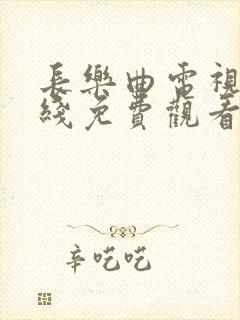 長樂曲電視
綫免費觀看
辛吃吃